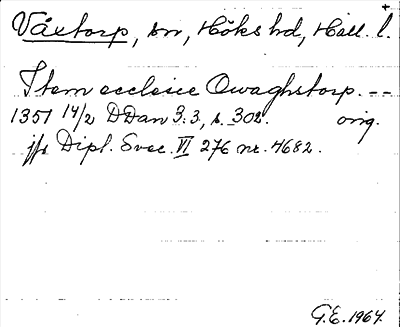 Våxtorp, sn, Höks hd, Hall. l.
Item ecclesie Owaghstorp. --
1357 14/2 DDan 3:3, s. 302. orig.
jfr Dipl. Svec. VI 276 nr. 4682.
G.E. 1964.